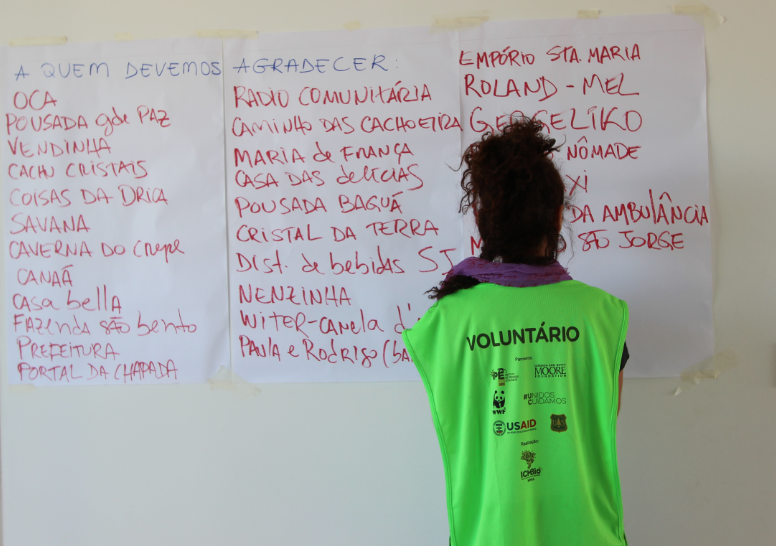 A QUEM DEVEMOS AGRADECER:
OCA
POUSADA gde PAZ
VENDINHA
CACHU CRISTAIS
COISAS DA DRICA
SAVANA
CAVERNA DO Crepe
CANAÃ
CASA bellA
FAZENDA SÃO bento
PREFEITURA
PORTAL DA CHAPADA
RADIO COMUNITÁRIA
CAMINHO DAS CACHOEIRA
MARIA de FRANÇA
CASA DAS delÍCIAS
POUSADA BAGUÁ
CRISTAL DA TERRA
DIST. de bebidas SJ
NENZINHA
WITER-CANELA d'
PAULA e RODRIGO (ba
EMPÓRIO STA. MARIA
ROLAND - MEL
GERGELIKO
NÔMADE
XI
DA AMBULÂNCIA
SÃO JORGE
VOLUNTÁRIO
MOORE
WWF
#UNIDOS
CUIDAMOS
USAID
ICMBio